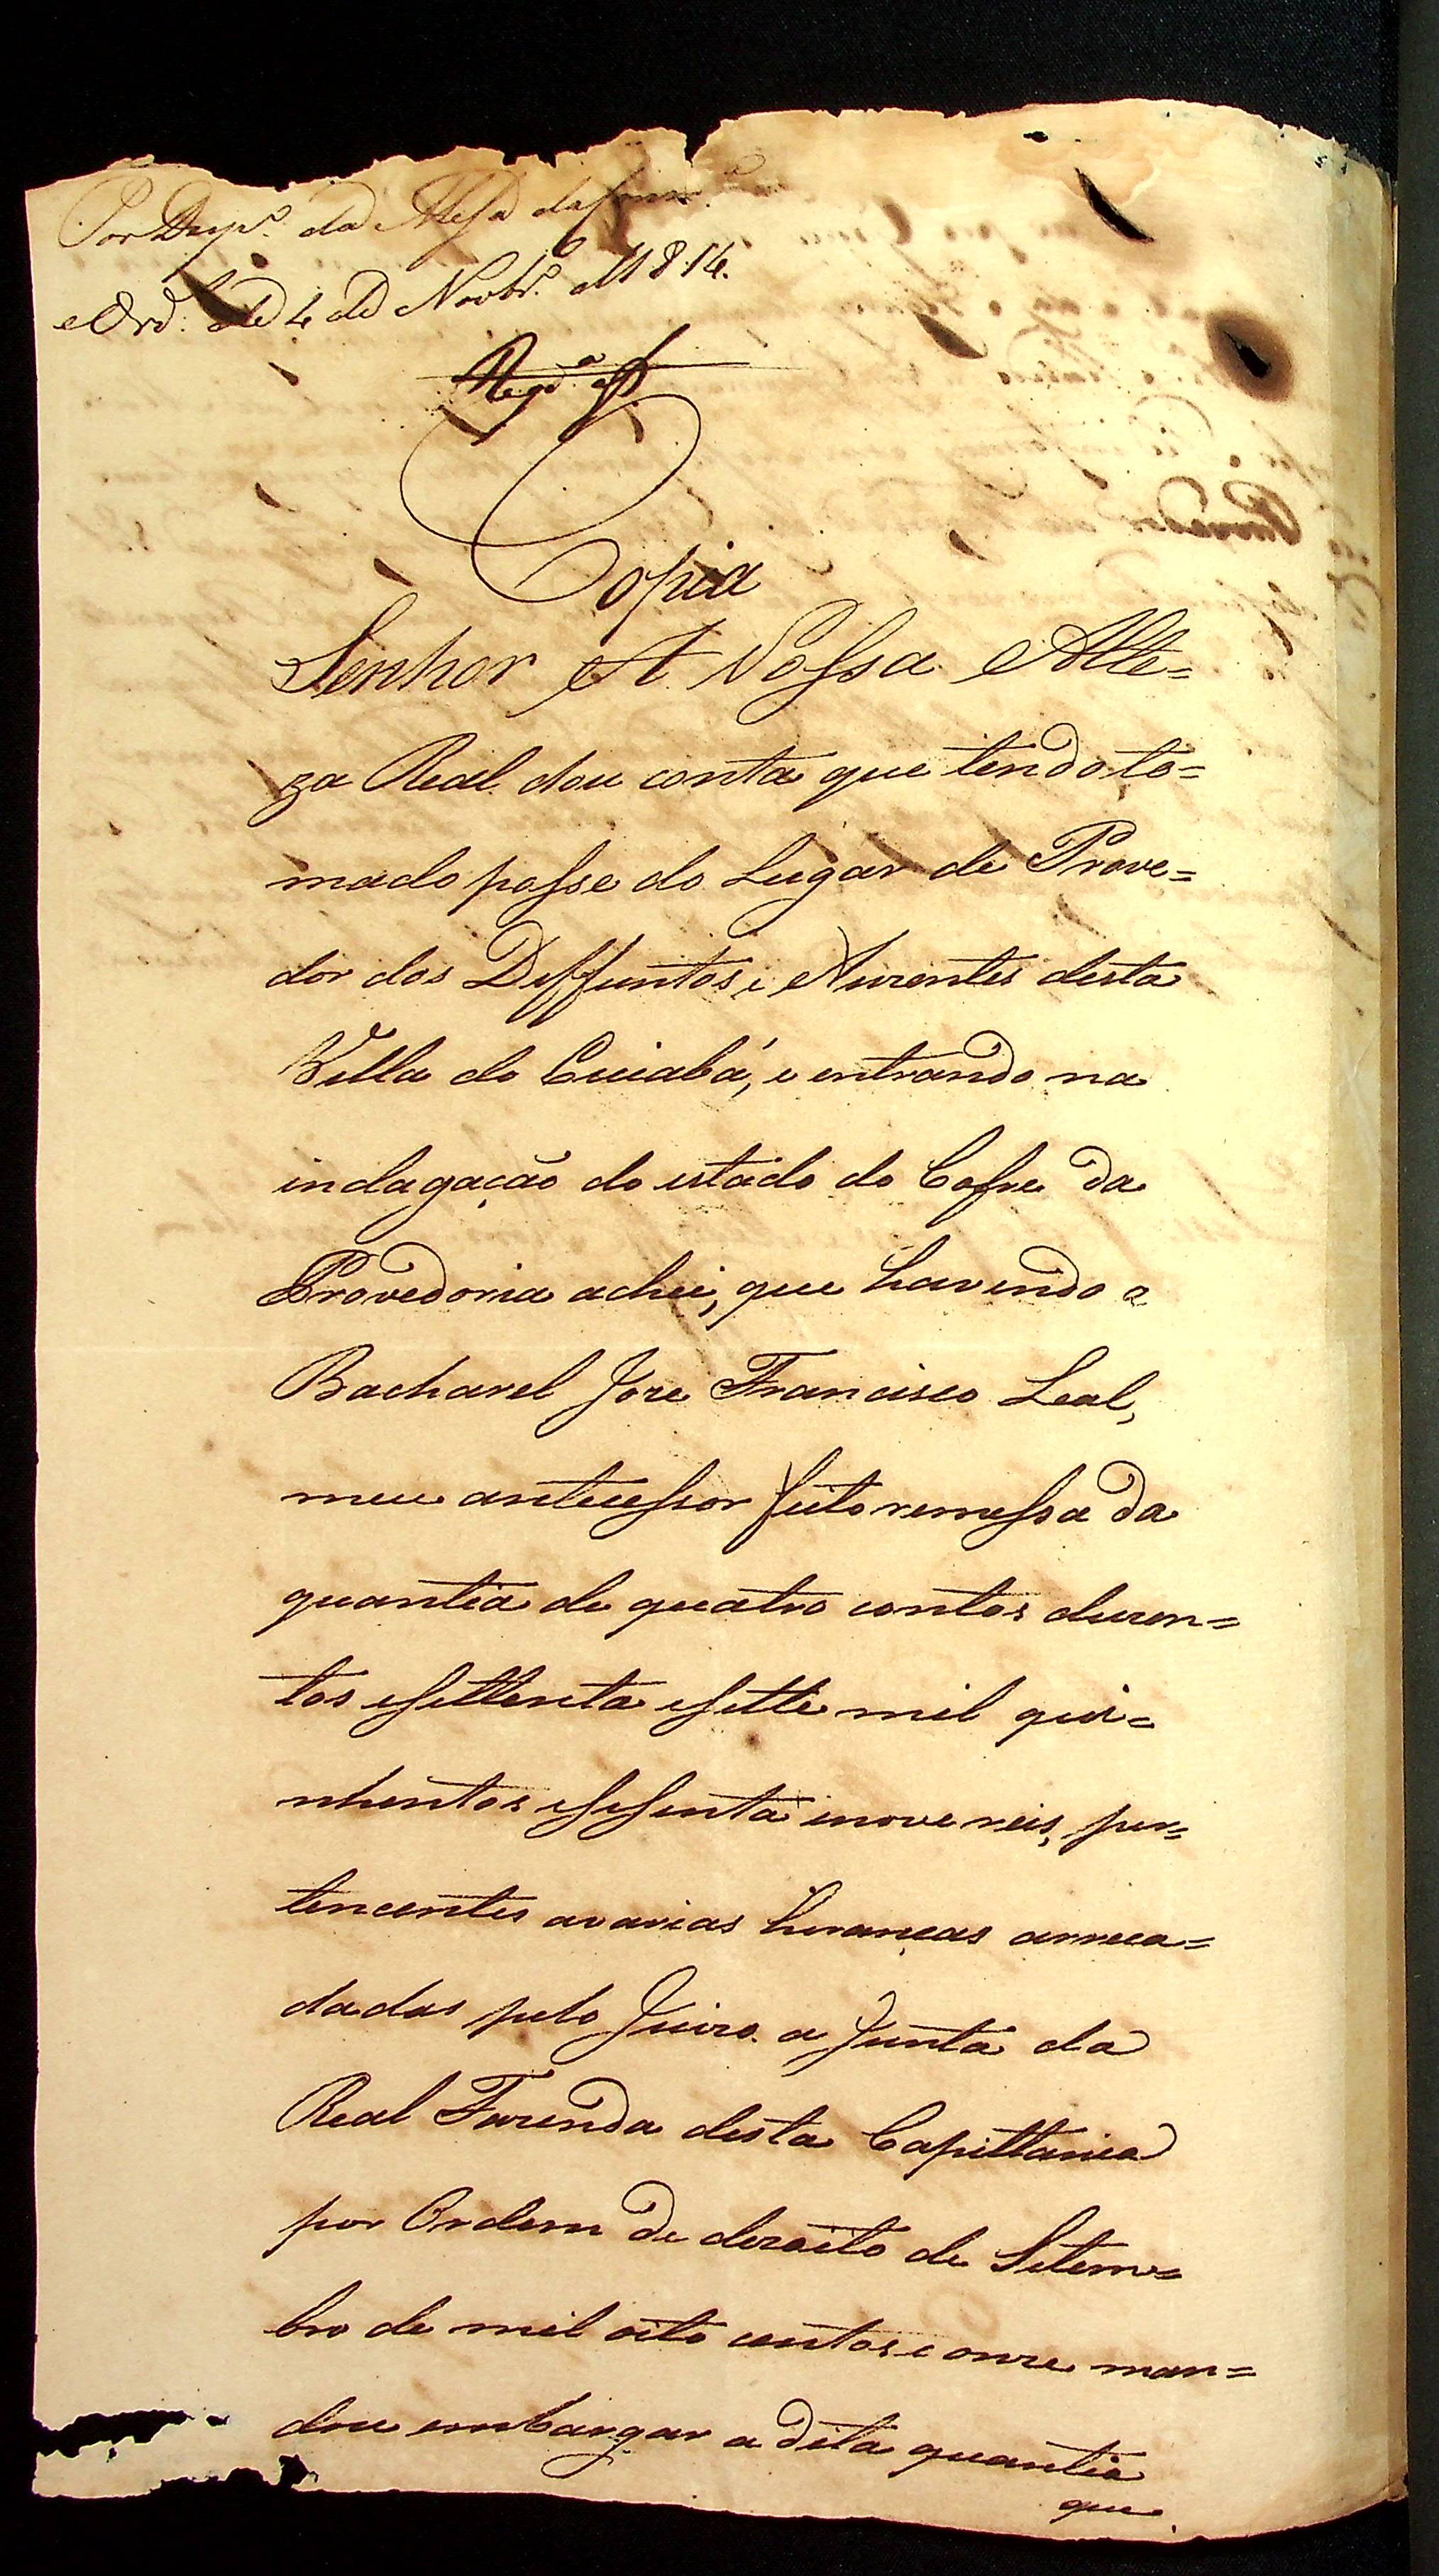 Por Desp.º da Mesa da Consc.ª
e Ord. de 4 de Novbr.º de 1814.
Reg.da
Copia
Senhor A Vossa Alte=
za Real dou conta que tendo to=
mado posse do Lugar de Prove=
dor dos Deffuntos, e Auzentes desta
Villa do Cuiabá, e entrando na
indagação do estado do Cofre da
Provedoria achei, que havendo o
Bacharel Joze Francisco Leal,
meu antecessor feito remessa da
quantia de quatro contos duzen=
tos esettenta esette mil qui=
nhentos esesenta enove reis, per=
tencentes avarias heranças arreca=
dadas pelo Juizo a Junta da
Real Fazenda desta Capittania
por Ordem de dezoito de Setem=
bro de mil oito centos e onze man=
dou embargar a dita quantia
que